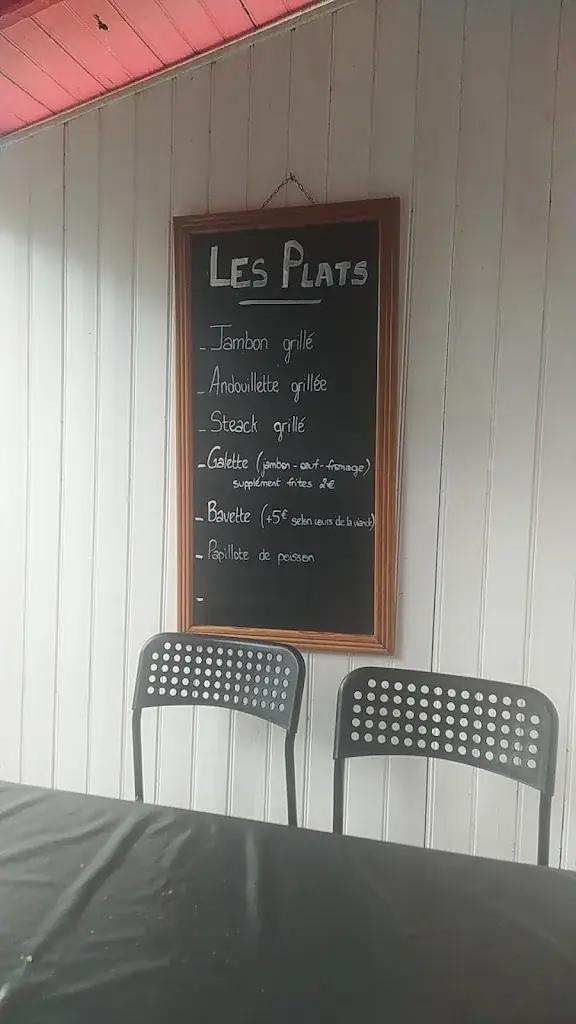 LES PLATS
- Jambon grillé
- Andouillette grillée
- Steack grillé
- Galette (jambon - œuf - fromage)
supplément frites 2€
- Bavette (+5€ selon cours de la viande)
- Papillote de poisson
-